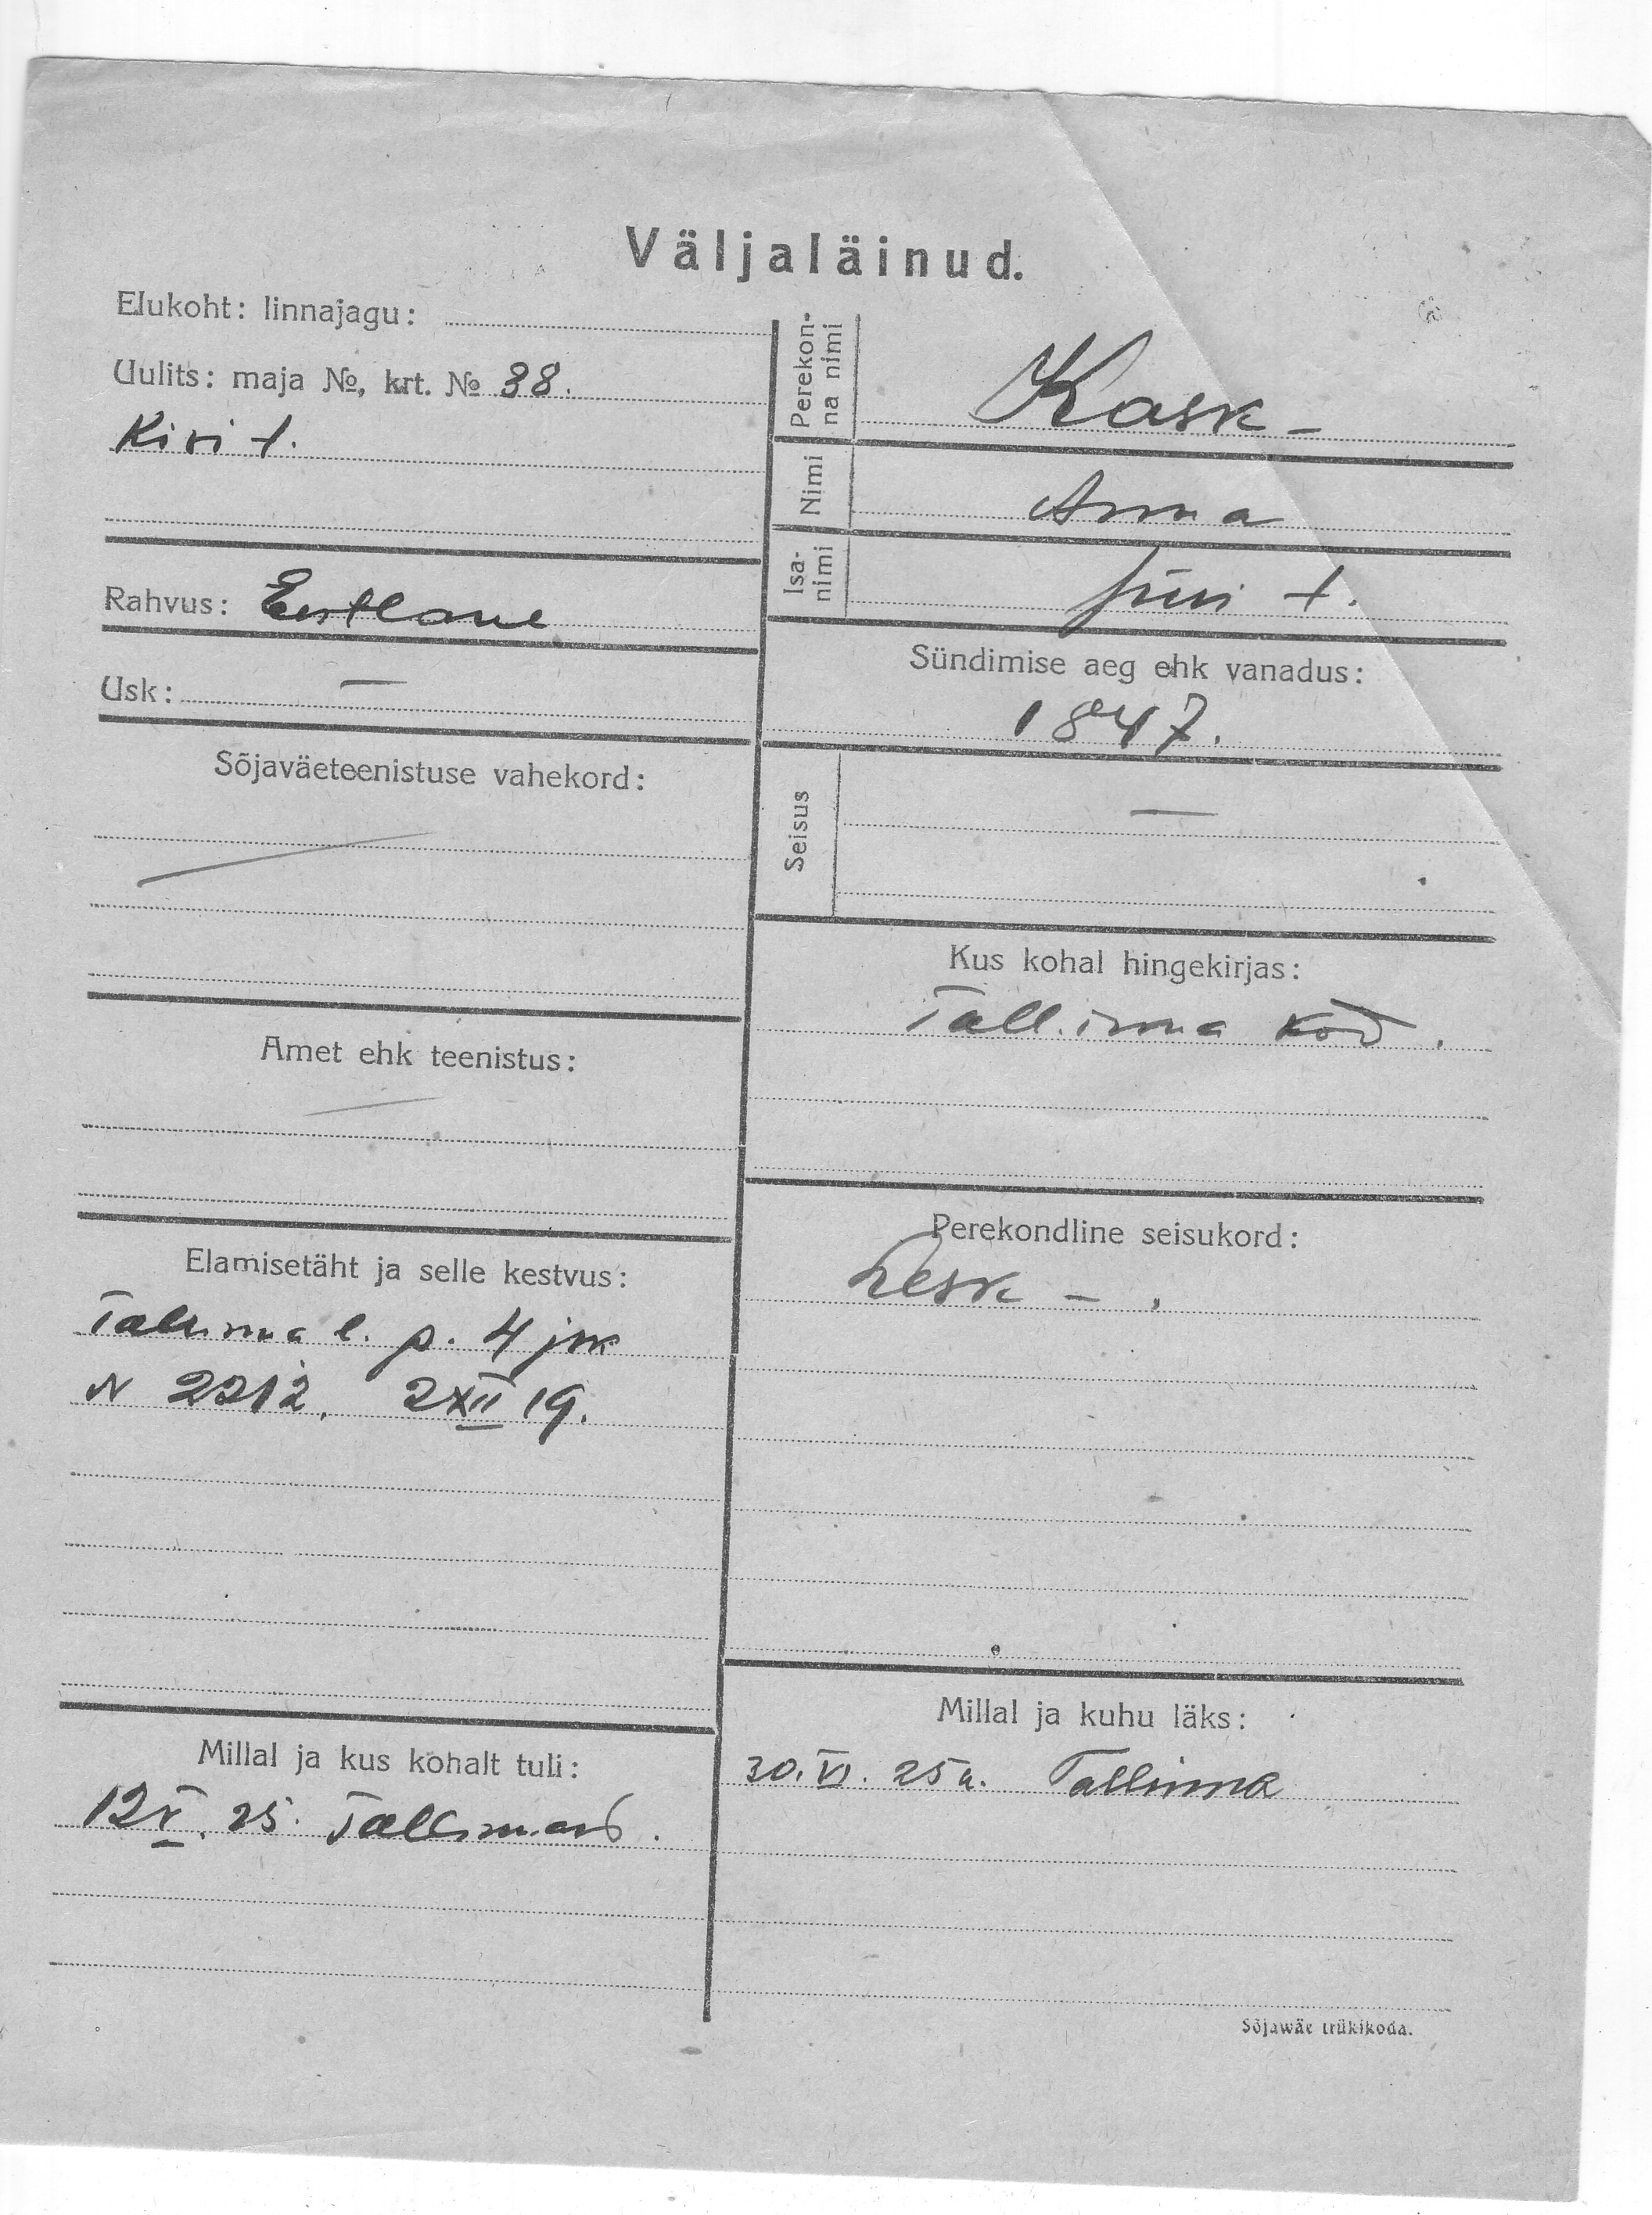 Väljaläinud.
Elukoht: linnajagu:
Uulits: maja №, krt. № 38.
Kivi t.
Rahvus: Eestlane
Usk: —
Sõjaväeteenistuse vahekord:
Amet ehk teenistus:
Elamisetäht ja selle kestvus:
Tallinna l. p. 4 jsk
N 2212. 2 XII 19.
Millal ja kus kohalt tuli:
12 V. 25. Tallinnast.
Perekon-
na nimi
Kask –
Nimi
Anna
Isa-
nimi
Jüri t.
Sündimise aeg ehk vanadus:
1847.
Seisus
—
Kus kohal hingekirjas:
Tallinna kod.
Perekondline seisukord:
Lesk – .
Millal ja kuhu läks:
30. VI. 25 a. Tallinna
Sõjawäe trükikoda.